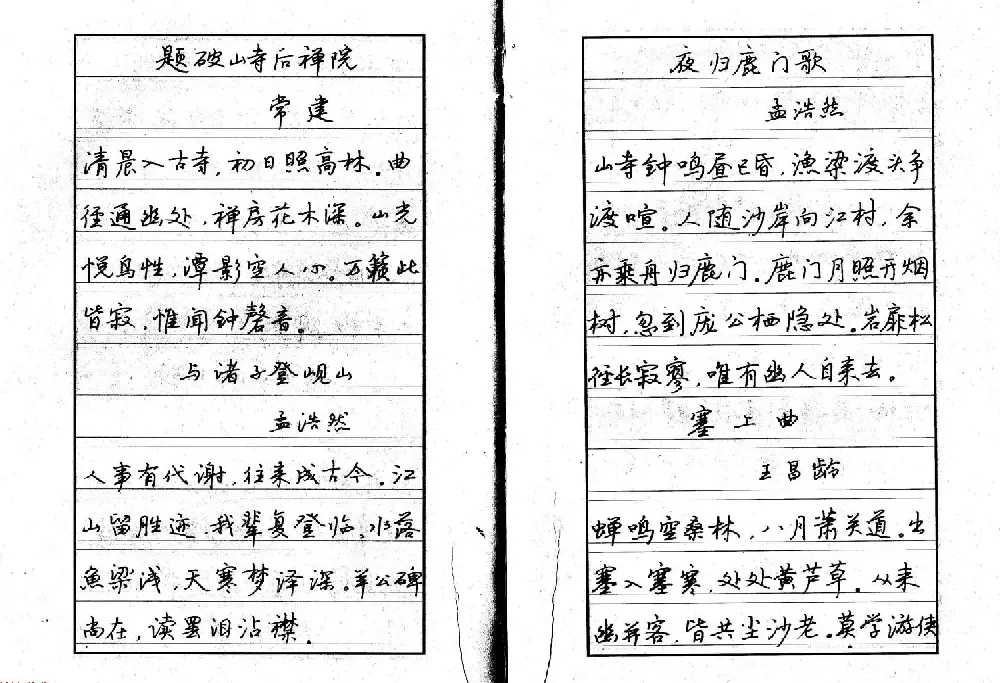 题破山寺后禅院
常建
清晨入古寺,初日照高林。曲
径通幽处,禅房花木深。山光
悦鸟性,潭影空人心。万籁此
皆寂,惟闻钟磬音。
与诸子登岘山
孟浩然
人事有代谢,往来成古今。江
山留胜迹,我辈复登临,水落
鱼梁浅,天寒梦泽深。羊公碑
尚在,读罢泪沾襟。
夜归鹿门歌
孟浩然
山寺钟鸣昼已昏,渔梁渡头争
渡喧。人随沙岸向江村,余
亦乘舟归鹿门。鹿门月照开烟
树,忽到庞公栖隐处。岩扉松
径长寂寥,唯有幽人自来去。
塞上曲
王昌龄
蝉鸣空桑林,八月萧关道。出
塞入塞寒,处处黄芦草。从来
幽并客,皆共尘沙老。莫学游侠